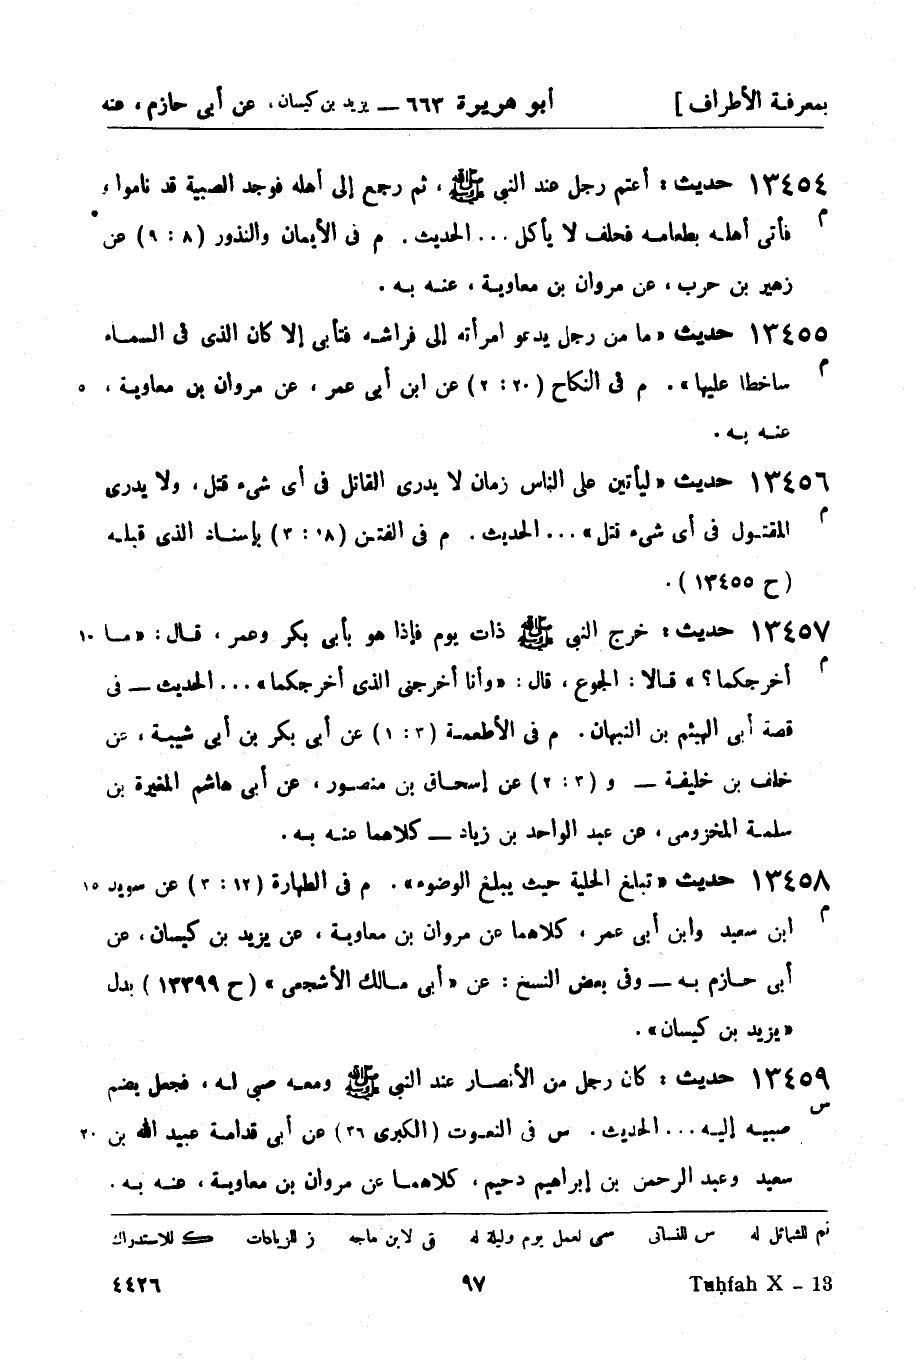 بمعرفة الأطراف] أبو هريرة ٦٦٣ — يزيد بن كيسان، عن أبى حازم، عنه
١٣٤٥٤ حديث: أعتم رجل عند النبى ﷺ، ثم رجع إلى أهله فوجد الصبية قد ناموا،
م فأتى أهله بطعامه فحلف لا يأكل... الحديث. م فى الأيمان والنذور (٨ : ٩) عن
زهير بن حرب، عن مروان بن معاوية، عنه به.
١٣٤٥٥ حديث «ما من رجل يدعو امرأته إلى فراشه فتأبى إلا كان الذى فى السماء
م ساخطا عليها». م فى النكاح (٢٠ : ٢) عن ابن أبى عمر، عن مروان بن معاوية، ٥
عنه به.
١٣٤٥٦ حديث «ليأتين على الناس زمان لا يدرى القاتل فى أى شىء قتل، ولا يدرى
م المقتول فى أى شىء قتل»... الحديث. م فى الفتن (١٨ : ٣) بإسناد الذى قبله
(ح ١٣٤٥٥).
١٣٤٥٧ حديث: خرج النبى ﷺ ذات يوم فإذا هو بأبى بكر وعمر، قال: «ما ١٠
م أخرجكما؟» قالا: الجوع، قال: «وأنا أخرجنى الذى أخرجكما»... الحديث — فى
قصة أبى الهيثم بن التيهان. م فى الأطعمة (٣ : ١) عن أبى بكر بن أبى شيبة، عن
خلف بن خليفة — و (٣ : ٢) عن إسحاق بن منصور، عن أبى هاشم المغيرة بن
سلمة المخزومى، عن عبد الواحد بن زياد — كلاهما عنه به.
١٣٤٥٨ حديث «تبلغ الحلية حيث يبلغ الوضوء». م فى الطهارة (١٢ : ٣) عن سويد ١٥
م ابن سعيد وابن أبى عمر، كلاهما عن مروان بن معاوية، عن يزيد بن كيسان، عن
أبى حازم به — وفى بعض النسخ: عن «أبى مالك الأشجعى» (ح ١٣٣٩٩) بدل
«يزيد بن كيسان».
١٣٤٥٩ حديث: كان رجل من الأنصار عند النبى ﷺ ومعه صبى له، فجعل يضم
س صبيه إليه... الحديث. س فى النعوت (الكبرى ٣٦) عن أبى قدامة عبيد الله بن ٢٠
سعيد وعبد الرحمن بن إبراهيم دحيم، كلاهما عن مروان بن معاوية، عنه به.
تم للشمائل له س للنسائى سى لعمل يوم وليلة له ق لابن ماجه ز للزيادات ك للاستدراك
Tuḥfah X – 13 ٩٧ ٤٤٢٦